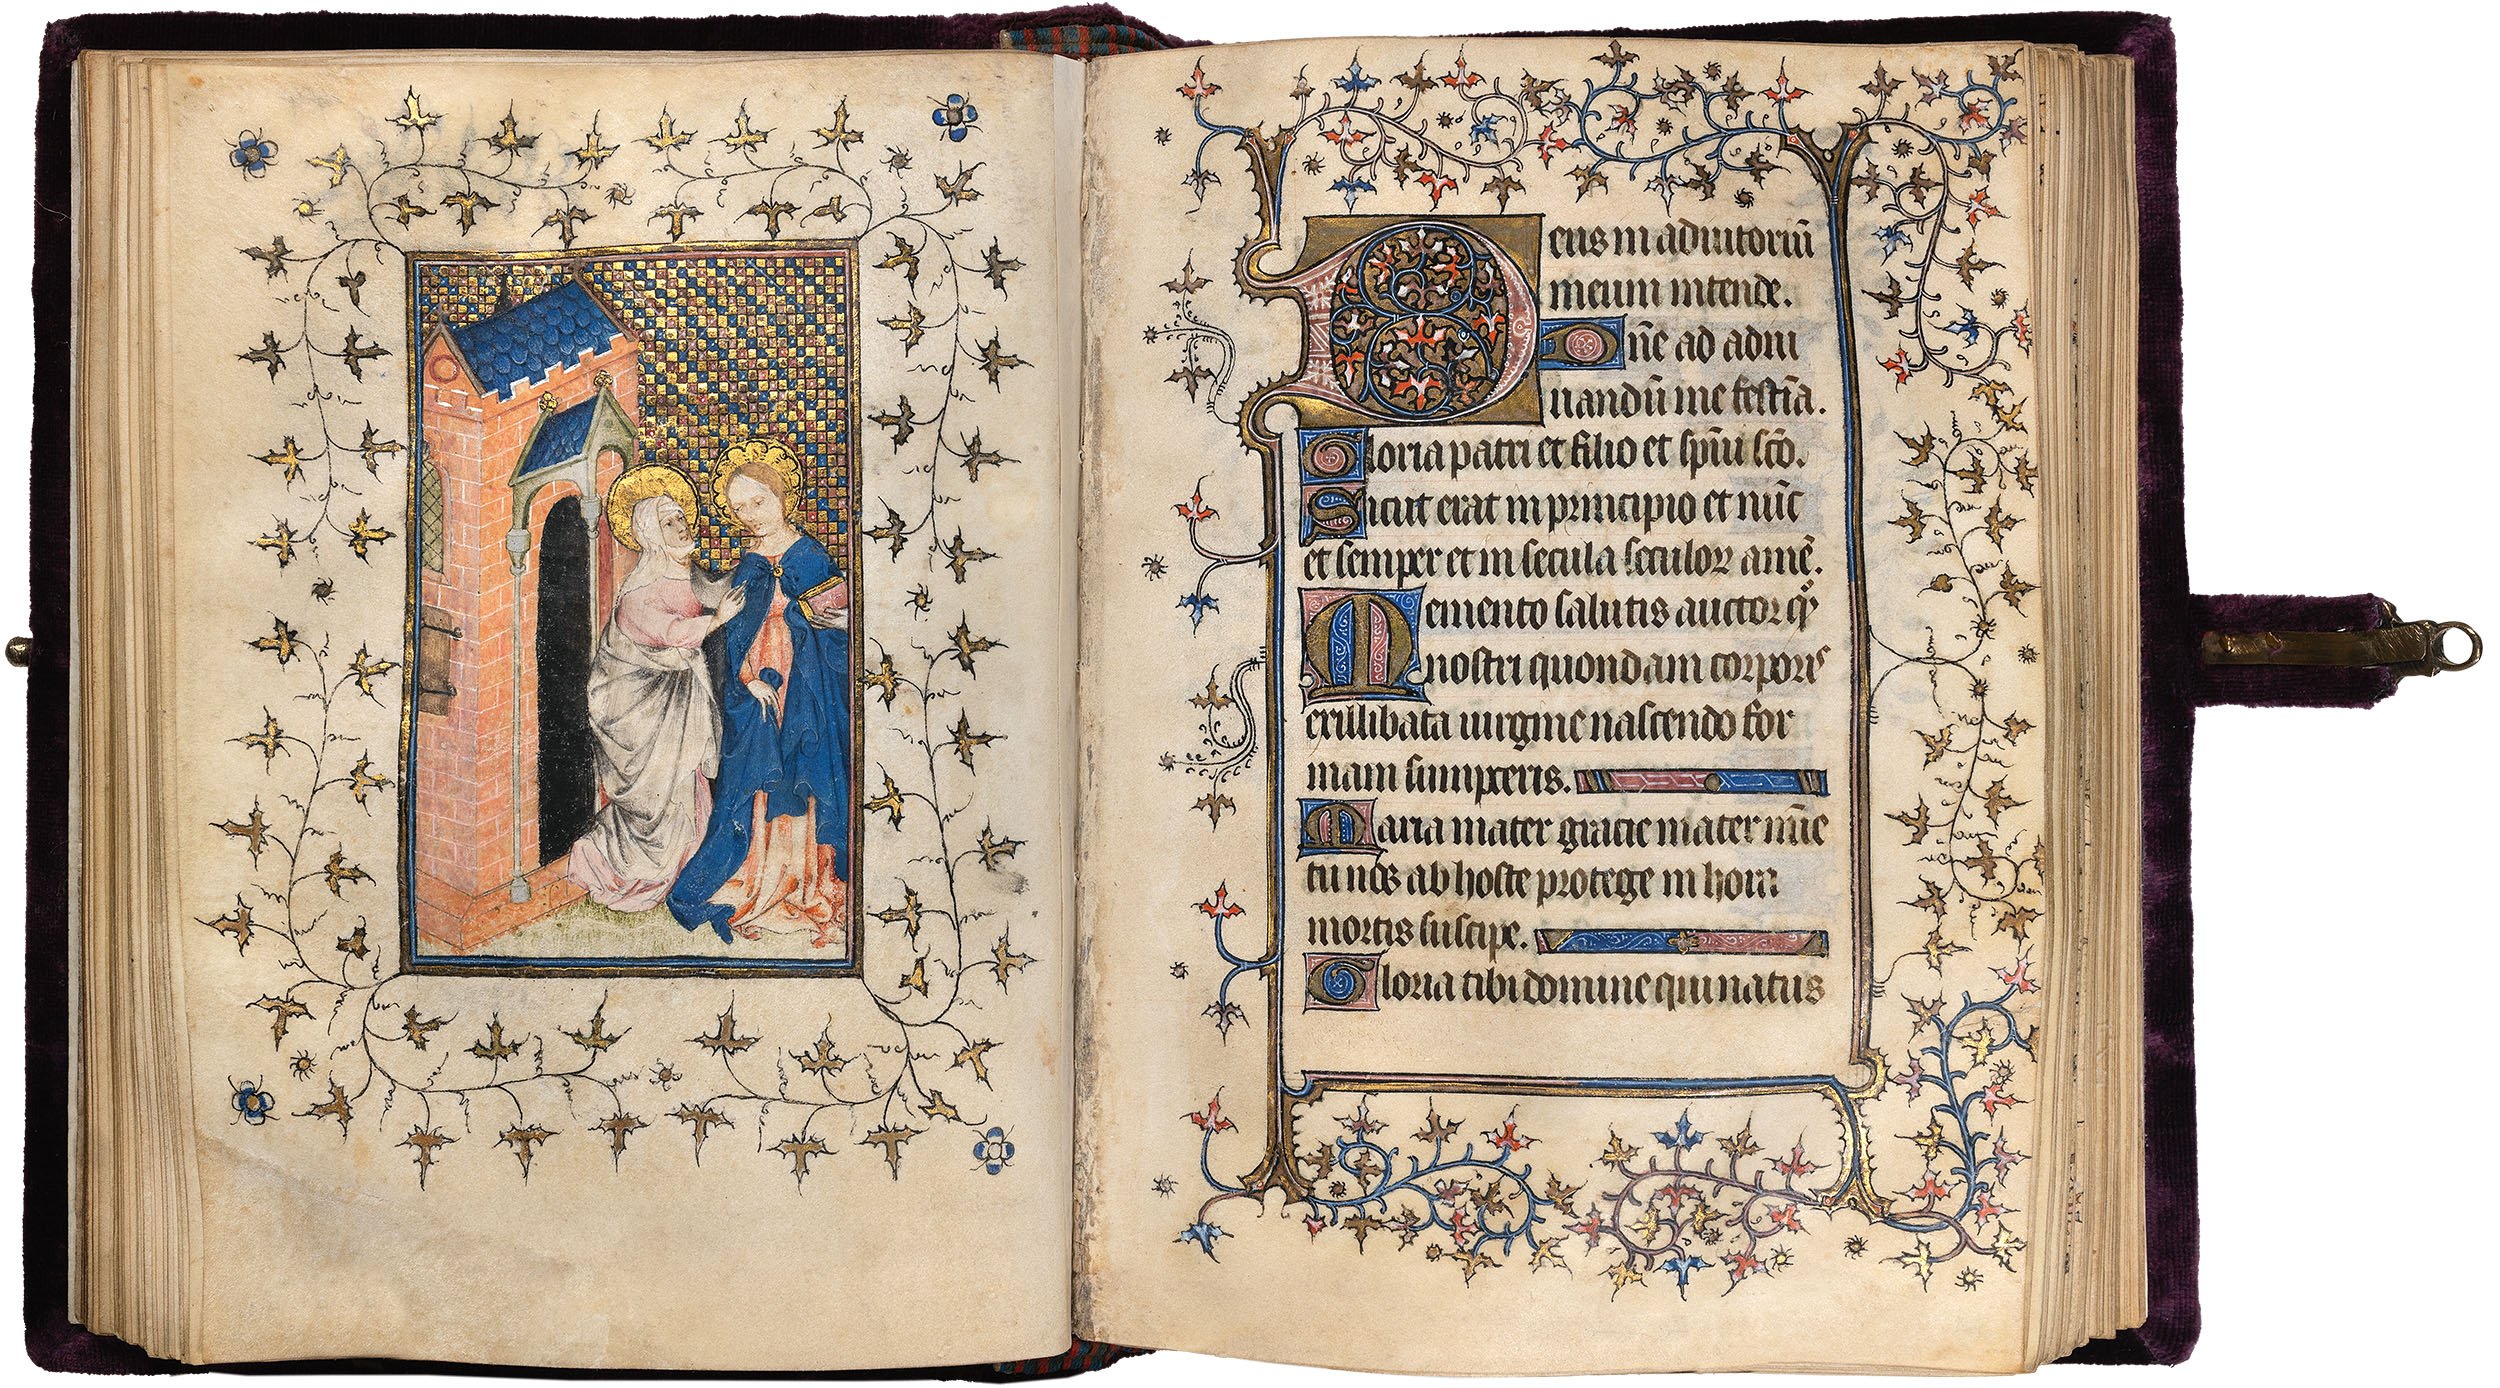 Deus in adiutoriū
meum intende.
Dn̄e ad adiu
uandū me festīa.
Gloria patri et filio et sp̄ui sc̄o.
Sicut erat in principio et nūc
et semper et in secula seculoꝝ amē.
Memento salutis auctor qͣ
nostri quondam corporis
ex illibata uirgine nascendo for
mam sumpxeris.
Maria mater gracie mater mīe
tu nos ab hoste protege in hora
mortis suscipe.
Gloria tibi domine qui natus